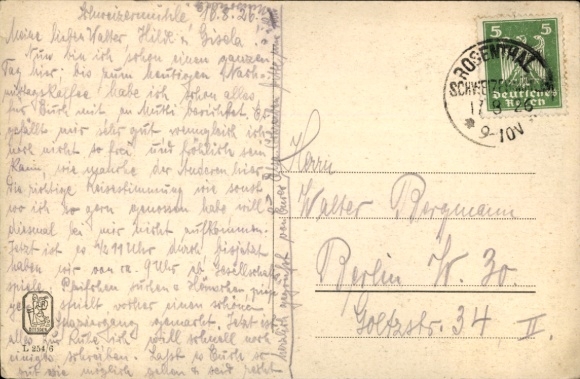 Schweizermühle 16.8.26.
Meine lieben Walter Hilde u. Gisela!
Nun bin ich schon einen ganzen
Tag hier; bis zum heutigen Nach-
mittagskaffee habe ich schon alles
für Euch mit an Mutti berichtet. Es
gefällt mir sehr gut wenngleich ich
noch nicht so frei und fröhlich sein
kann, wie manche der Anderen hier.
Die richtige Reisestimmung wie sonst
wo ich so gern genossen habe will
diesmal bei mir nicht aufkommen.
Jetzt ist es 1/2 11 Uhr durch
haben wir von ca. 9 Uhr ab Gesellschafts
spiele, suchen u.
gespielt vorher einen schönen
Spaziergang gemacht. Jetzt ist
alles zur Ruhe, ich will schnell noch
einiges schreiben. Lasst es Euch so
gut wie möglich gehen u seid recht
herzlich gegrüsst von Eurer
L 254/6
5 5
Deutsches
Reich
ROSENTHAL
17.8.26
9-10V
Herrn
Walter Bergmann
Berlin W. 30.
Goltzstr. 34 II.